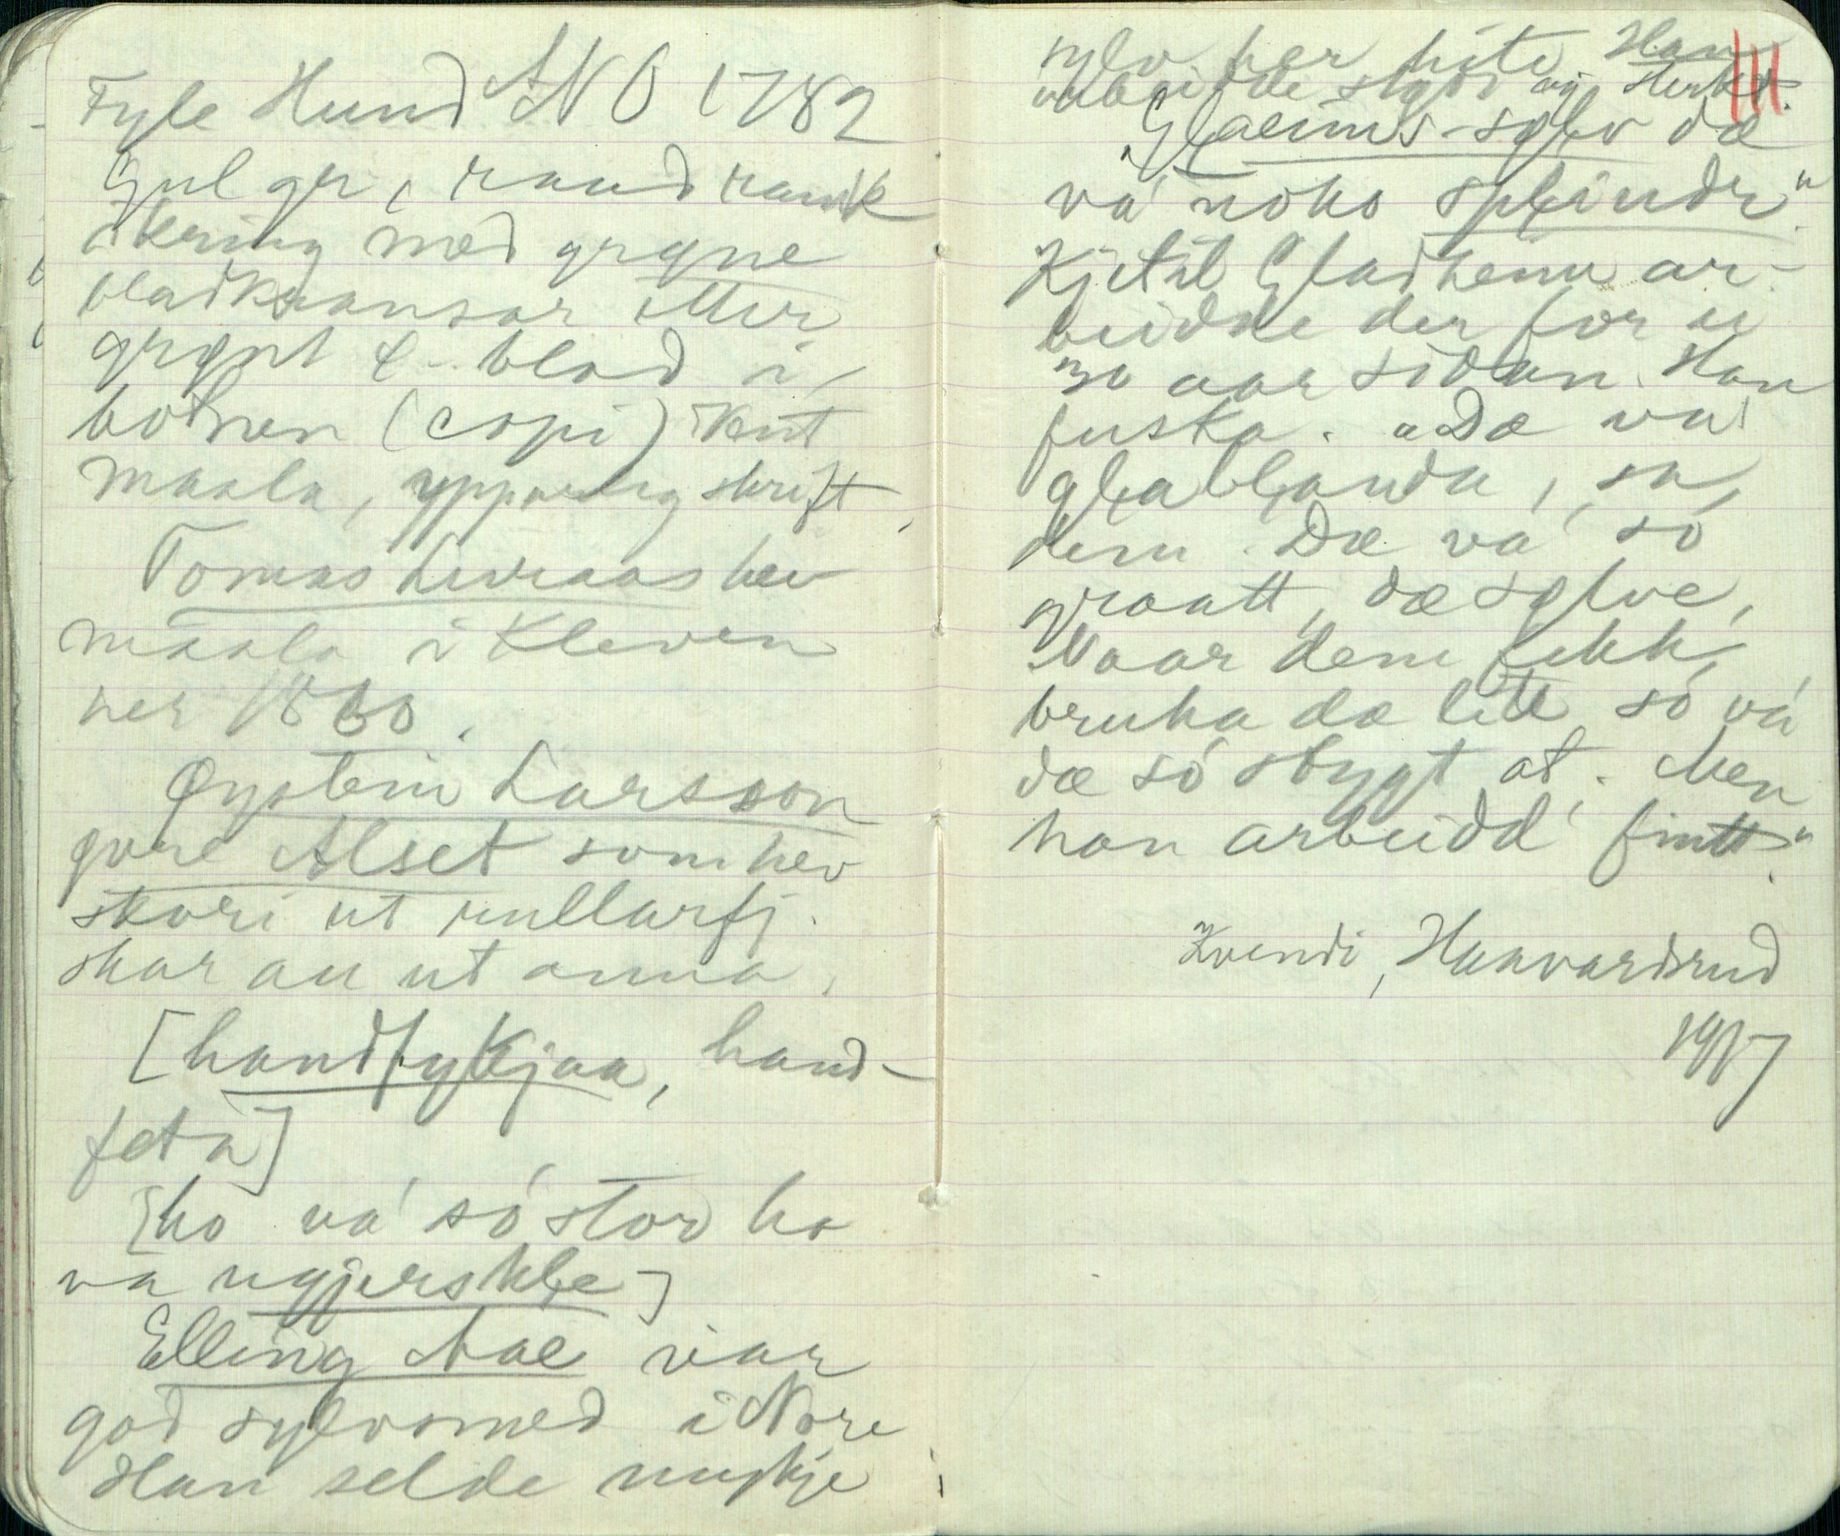 Fyle Hund ANO 1782
Gul gr, raud rank
ikring med grøne
bladkransar etter
grønt e-blad i
botnen (copi) kvit
maala, ypparleg skrift,
Tomas Luraas hev
maala i Kleven
her 1860.
Øystein Larsson
gore Alset som hev
skori ut rullarfj.
skar au ut anna.
[handfykjaa, hand-
feta]
[ho vá só stor ho
va ugjerskle]
Elling Aae var
god sylvsmed i Nore
Han selde mykje
sylv her hite Han
arbeidde stødt og sterkt.
"Glaeims-sølv dæ
vá noko spleindr"
Kjetil Gladheim ar-
beidde der for ei
30 aar sidan. Han
fuska. "Dæ va
glablanda, sa
dem. Dæ vá só
graatt, dæ sølve,
Naar dem fekk
bruka dæ lite só vá
dæ só stygt at. Men
han arbeidd fintt".
Kvendi, Haavardsrud
1917
III